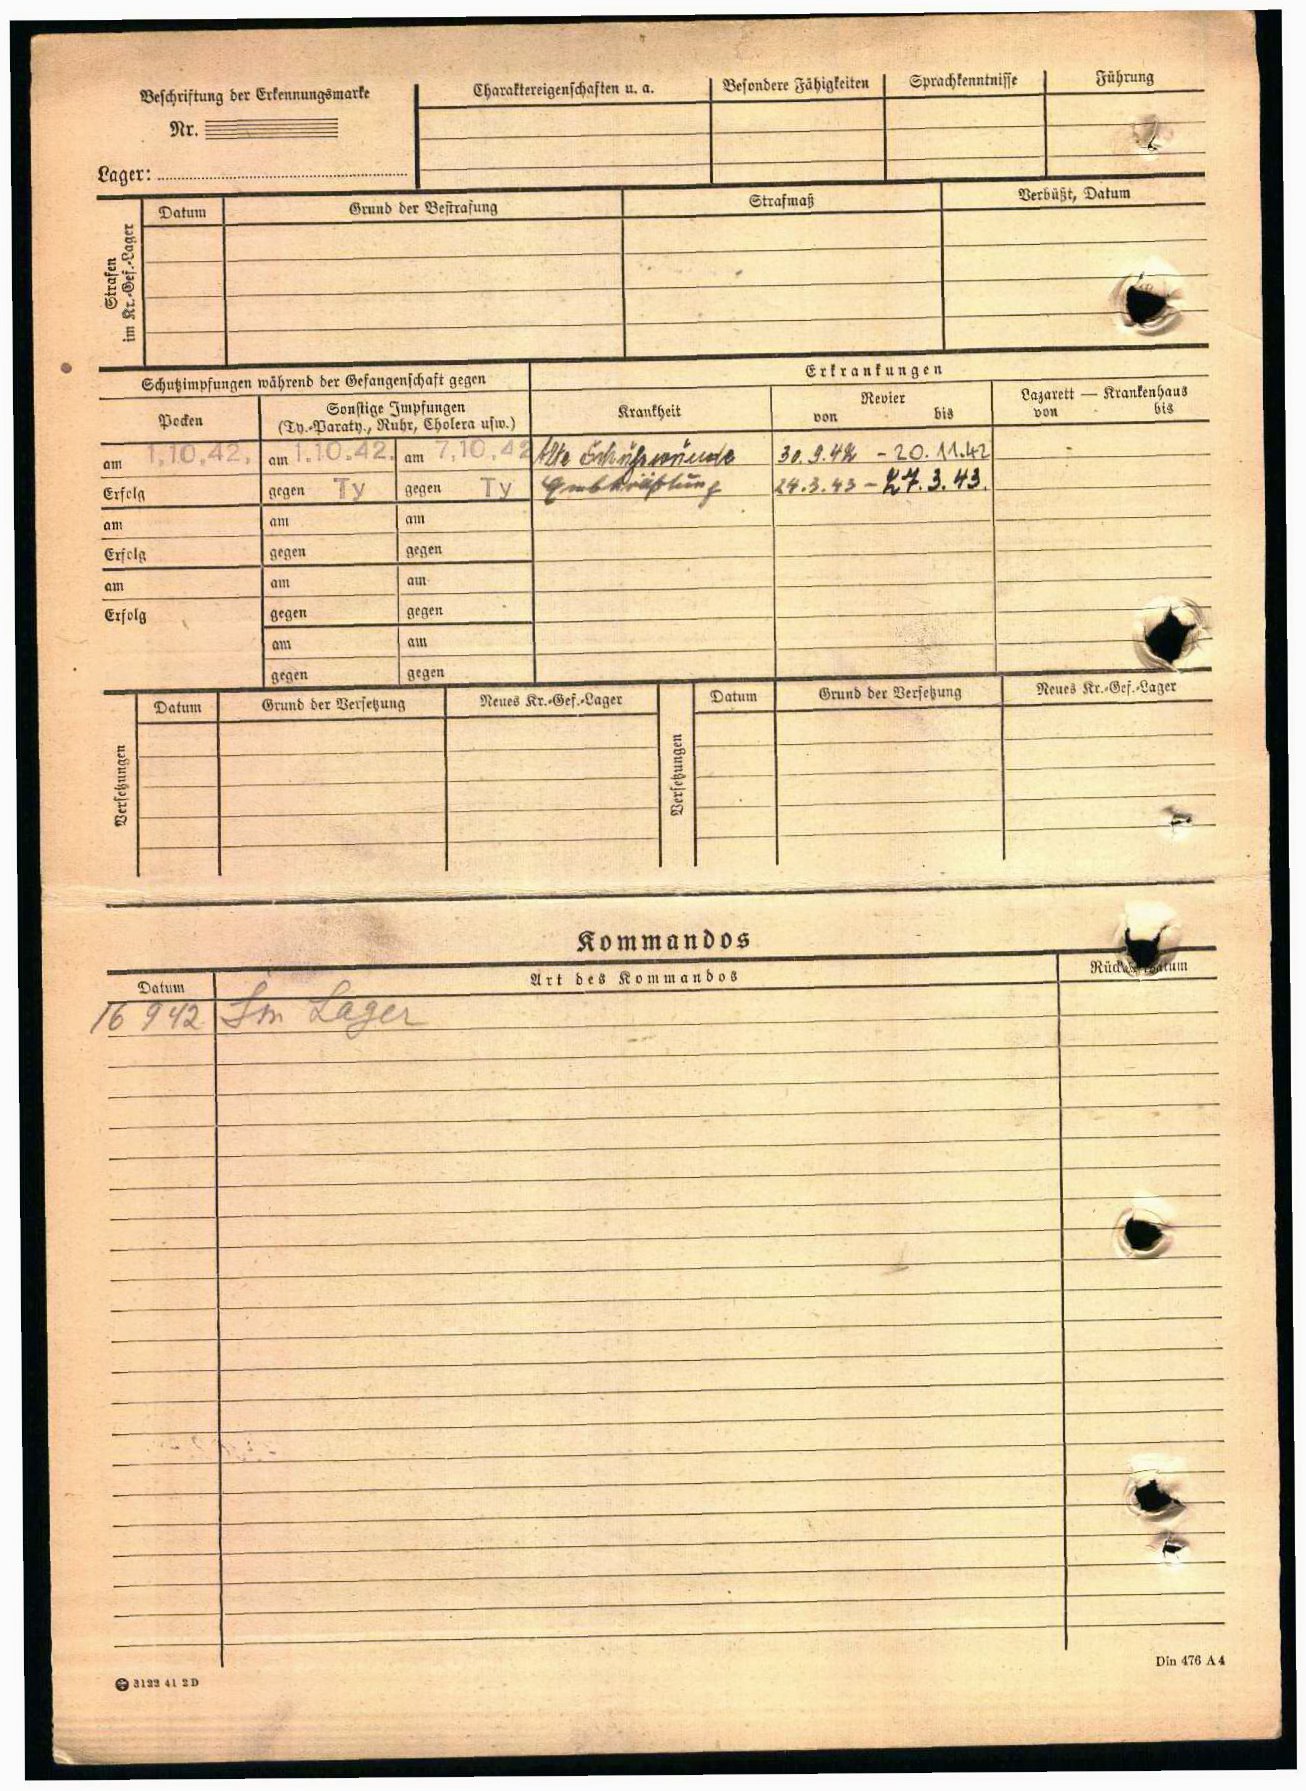 Beschriftung der Erkennungsmarke
Nr.
Lager:
Charaktereigenschaften u. a.
Besondere Fähigkeiten
Sprachkenntnisse
Führung
Strafen
im Kr.-Gef.-Lager
Datum
Grund der Bestrafung
Strafmaß
Verbüßt, Datum
Schutzimpfungen während der Gefangenschaft gegen
Erkrankungen
Pocken
Sonstige Impfungen
(Ty.-Paraty., Ruhr, Cholera usw.)
Krankheit
Revier
von bis
Lazarett — Krankenhaus
von bis
am 1.10.42. am 1.10.42. am 7.10.42 Alte Schußwunde 30.9.42 - 20.11.42 -
Erfolg gegen Ty gegen Ty Entkräftung 24.3.43 - 27.3.43.
am am am
Erfolg gegen gegen
am am am
Erfolg gegen gegen
am am
gegen gegen
Versetzungen
Datum
Grund der Versetzung
Neues Kr.-Gef.-Lager
Versetzungen
Datum
Grund der Versetzung
Neues Kr.-Gef.-Lager
Kommandos
Datum
Art des Kommandos
16 9 42 Im Lager
3122 41 2 D
Din 476 A 4